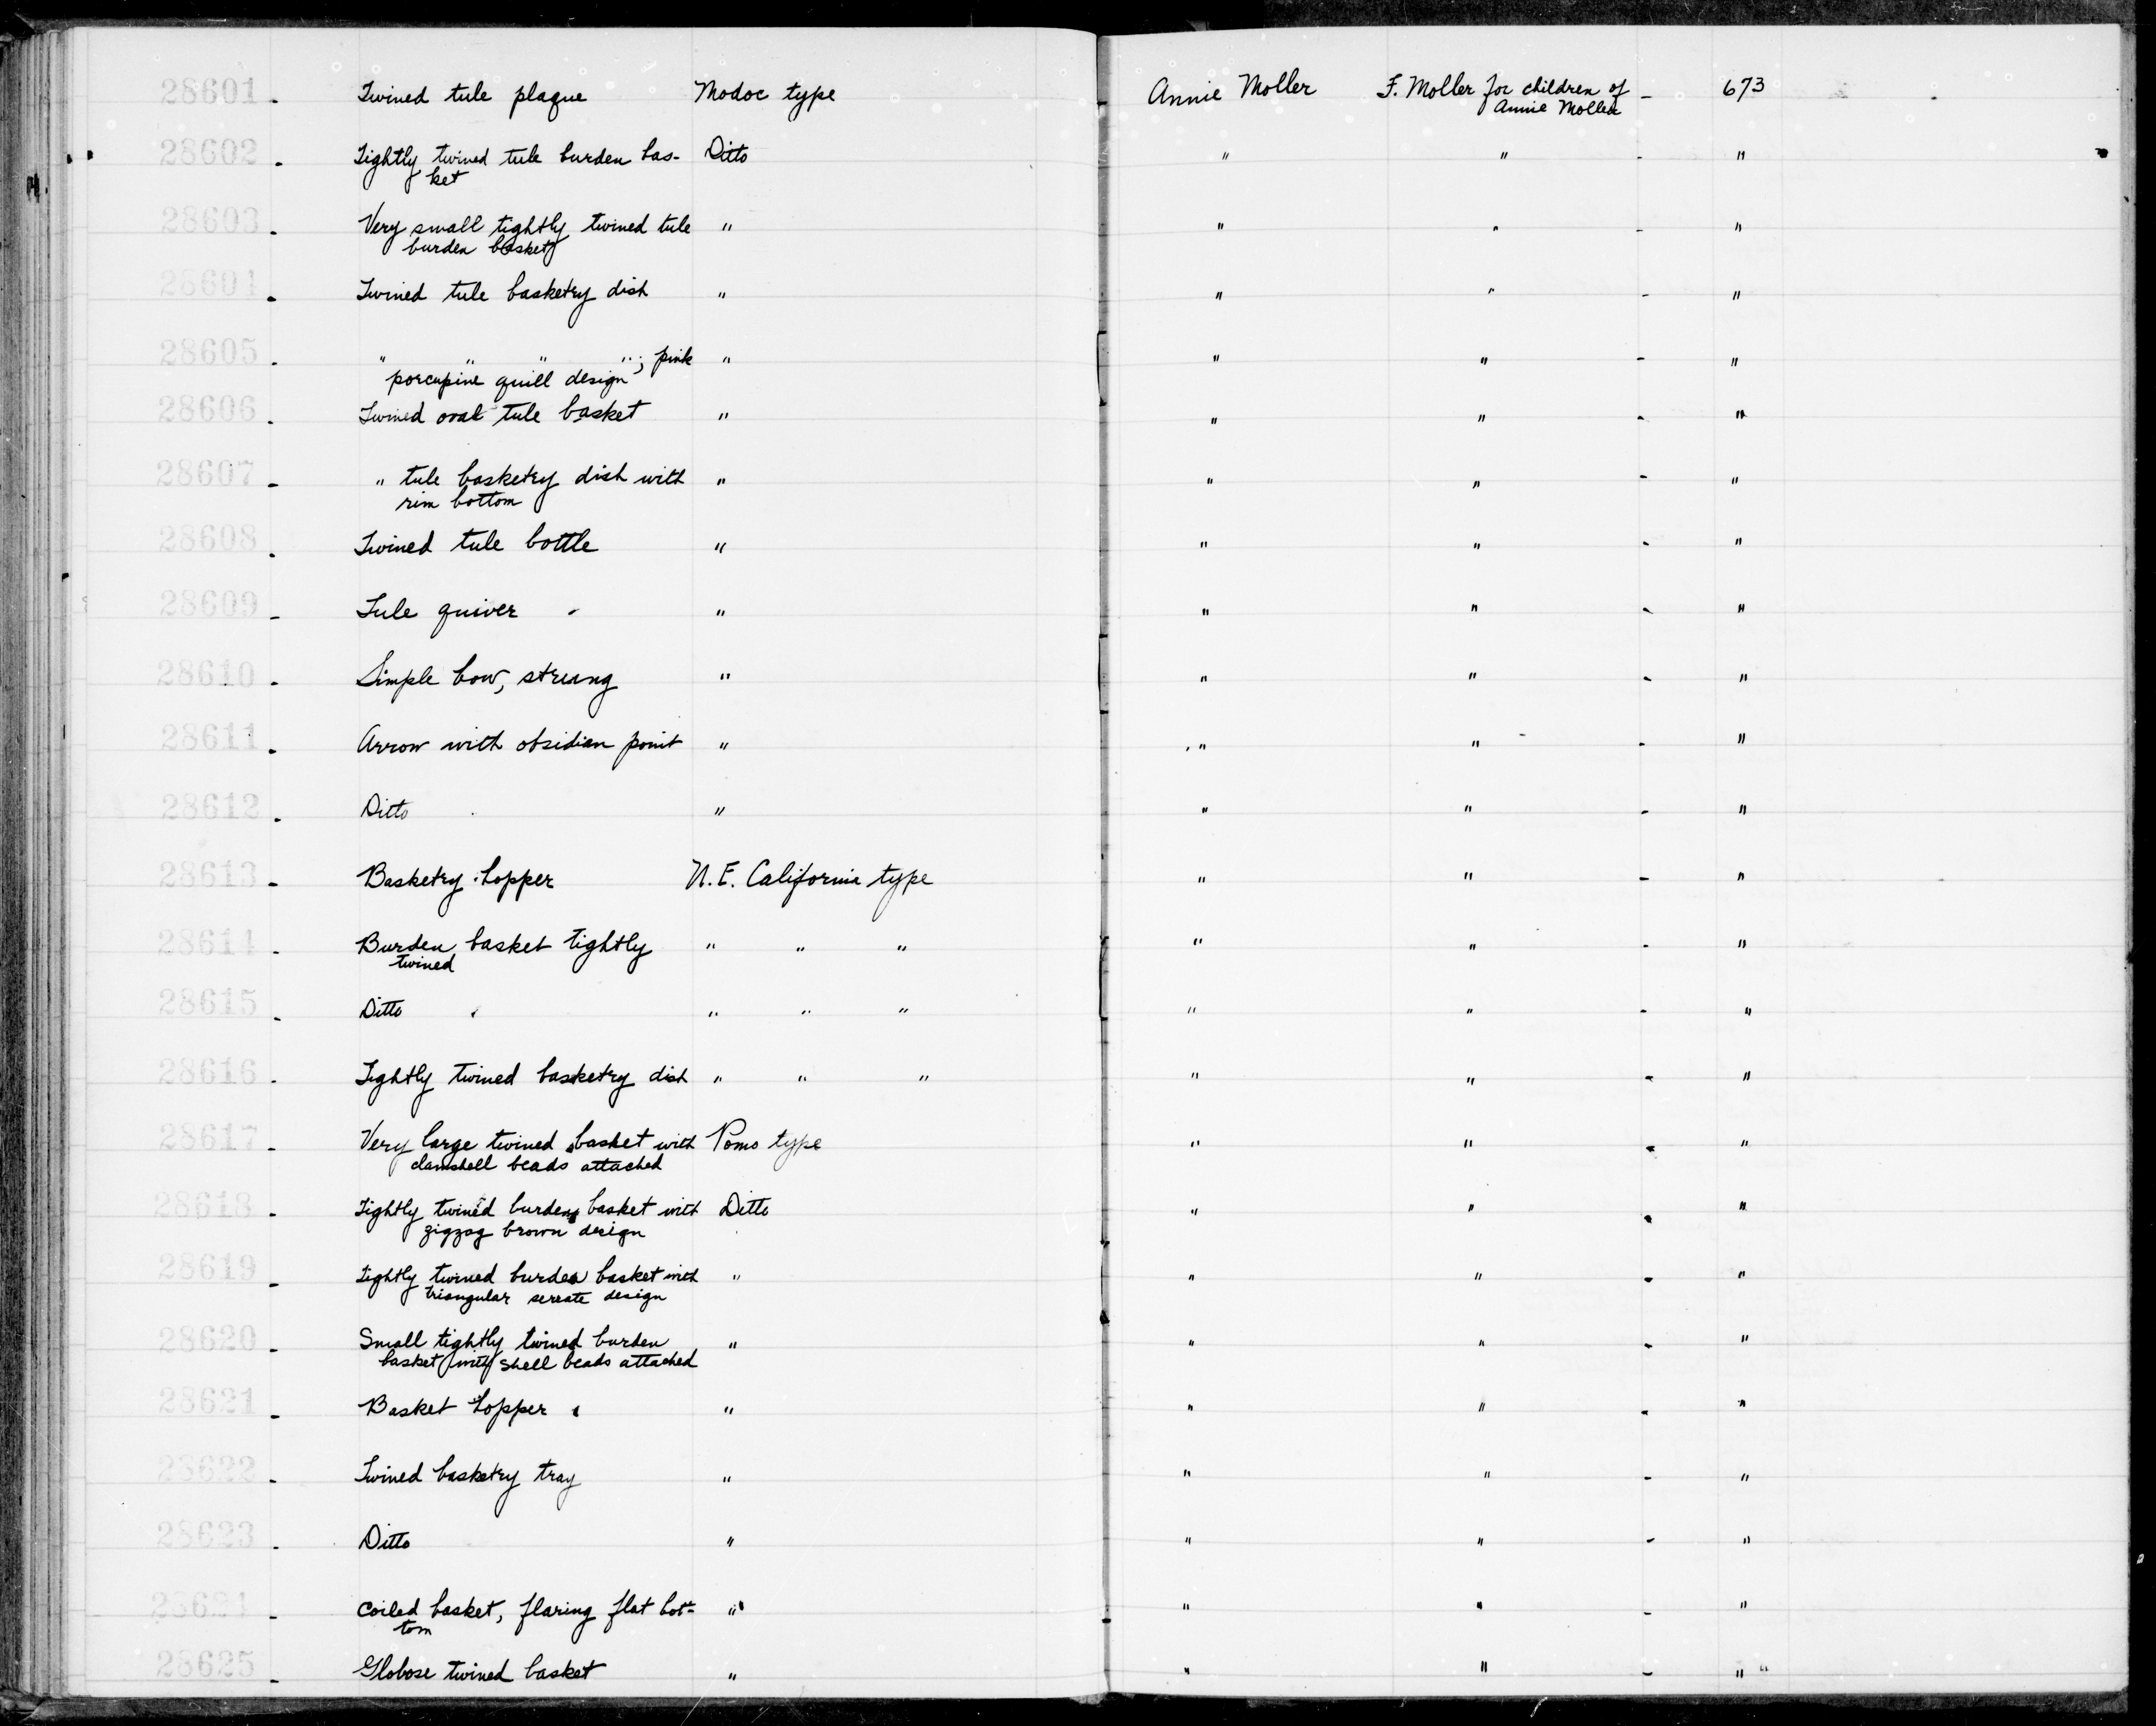 28601. Twined tule plaque Modoc type Annie Moller F. Moller for children of - 673
Annie Moller
28602. Tightly twined tule burden bas- Ditto " " - "
ket
28603. Very small tightly twined tule " " " - "
burden basket
28604. Twined tule basketry dish " " " - "
28605. " " " "; pink " " " - "
porcupine quill design
28606. Twined oval tule basket " " " - "
28607. " tule basketry dish with " " " - "
rim bottom
28608. Twined tule bottle " " " - "
28609. Tule quiver " " " - "
28610. Simple bow, strung " " " - "
28611. Arrow with obsidian point " " " - "
28612. Ditto " " " - "
28613. Basketry hopper N.E. California type " " - "
28614. Burden basket tightly " " " " " - "
twined
28615. Ditto " " " " " - "
28616. Tightly twined basketry dish " " " " " - "
28617. Very large twined basket with Pomo type " " - "
clamshell beads attached
28618. Tightly twined burden basket with Ditto " " - "
zigzag brown design
28619. Tightly twined burden basket with " " " - "
triangular sereate design
28620. Small tightly twined burden " " " - "
basket with shell beads attached
28621. Basket hopper " " " - "
28622. Twined basketry tray " " " - "
28623. Ditto " " " - "
28624. Coiled basket, flaring flat bot- " " " - "
tom
28625. Globose twined basket " " " - "